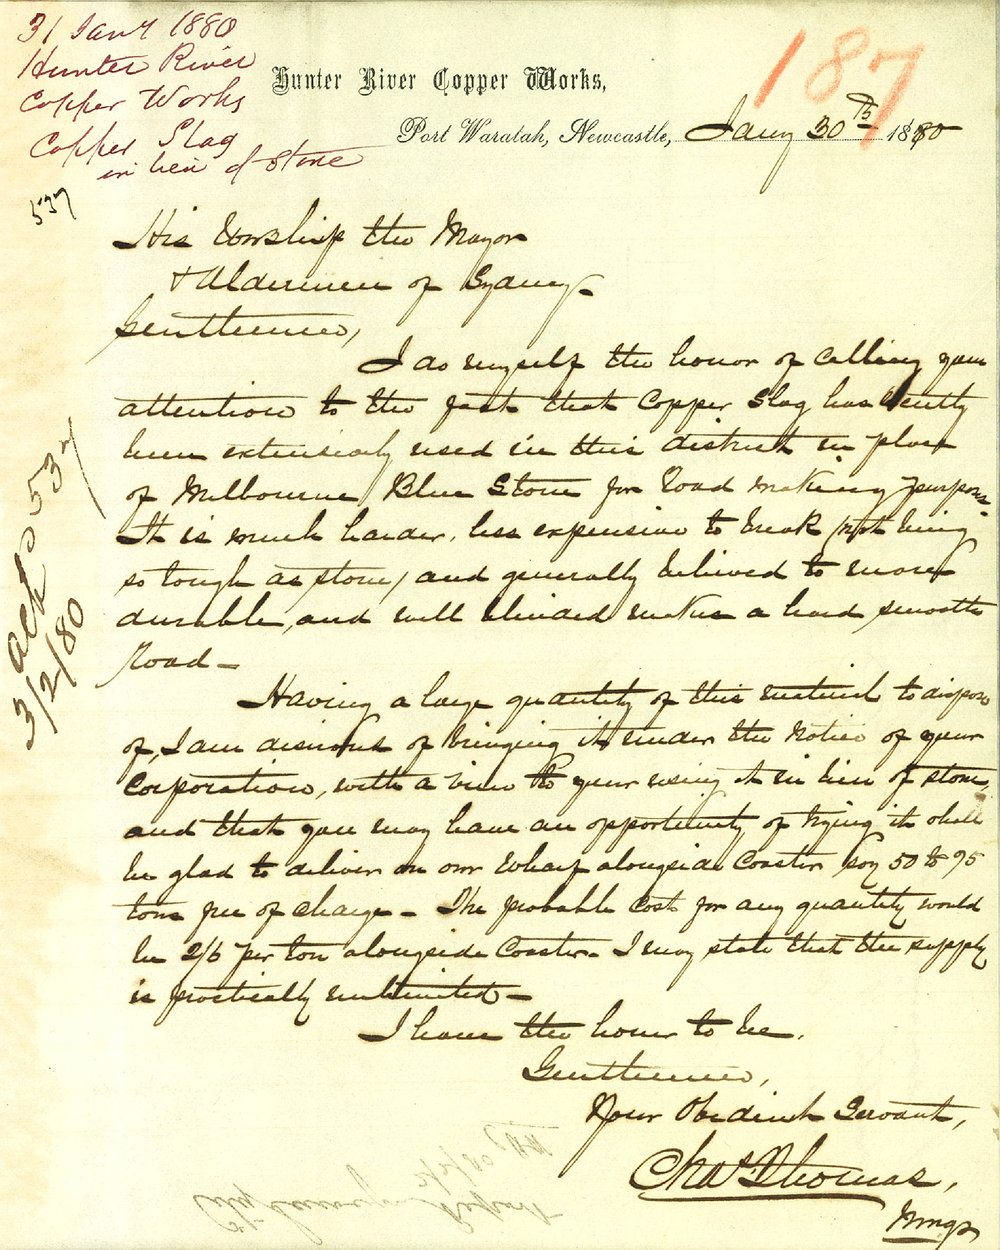 31 Jany 1880
Hunter River
Copper Works
Copper Slag
in lieu of Stone
537
187
Hunter River Copper Works,
Port Waratah, Newcastle, Jany 30th 1880
His Worship the Mayor
& Aldermen of Sydney
Gentlemen,
I do myself the honor of calling your
attention to the fact that Copper Slag has lately
been extensively used in this district in place
of Melbourne Blue Stone for Road making purposes.
It is much harder, less expensive to break (not being
so tough as stone) and generally believed to more
durable, and well blinded makes a hard smooth
Road –
Having a large quantity of this material to dispose
of, I am desirous of bringing it under the Notice of your
Corporation, with a view to your using it in lieu of stone,
and that you may have an opportunity of trying it shall
be glad to deliver on our Wharf alongside Coaster say 50 to 75
tons free of charge – The probable Cost for any quantity would
be 2/6 per ton alongside Coaster. I may state that the supply
is practically unlimited –
I have the honor to be,
Gentlemen,
Your Obedient Servant,
Chas Thomas,
Mngr
ackd 537
3/2/80